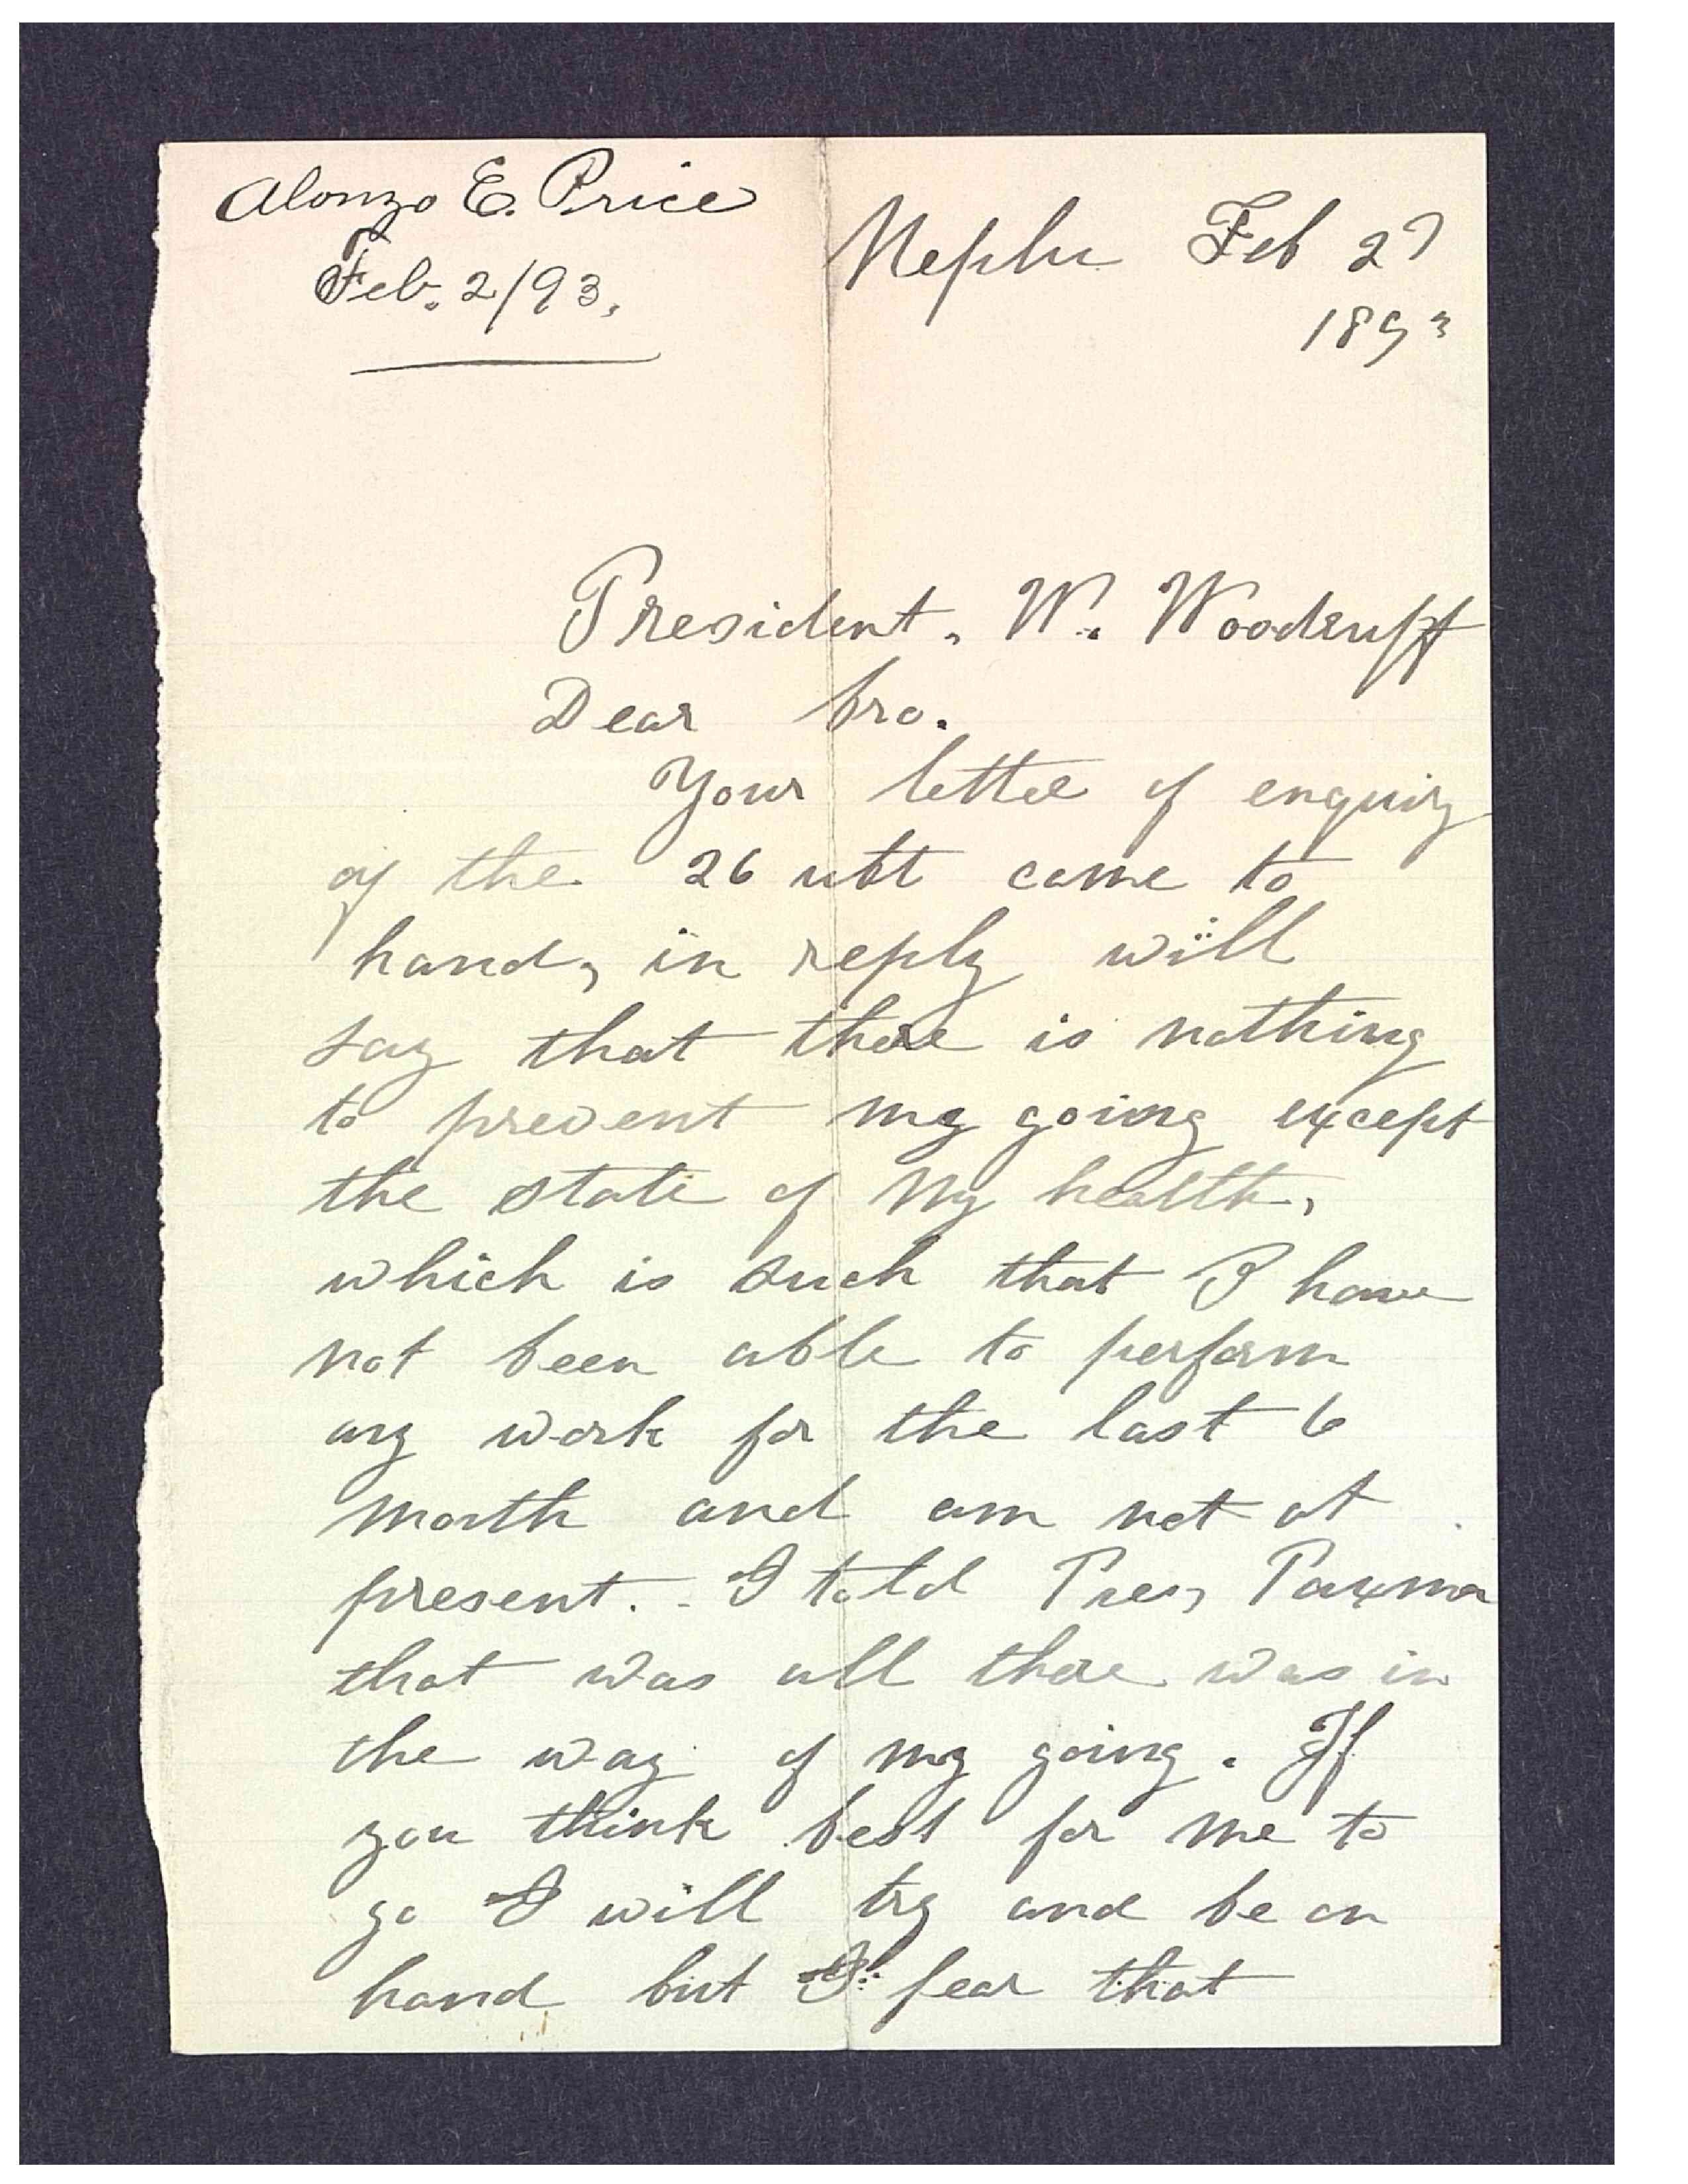 Alonzo E. Price
Feb. 2/93.
Nephi Feb 2?
1893
President. W. Woodruff
Dear bro.
Your letter of enquiry
of the 26 ult came to
hand, in reply will
say that there is nothing
to prevent my going except
the state of my health,
which is such that I have
not been able to perform
any work for the last 6
month and am not at
present. I told Pres, Paxman
that was all there was in
the way of my going. If
you think best for me to
go I will try and be on
hand but I fear that